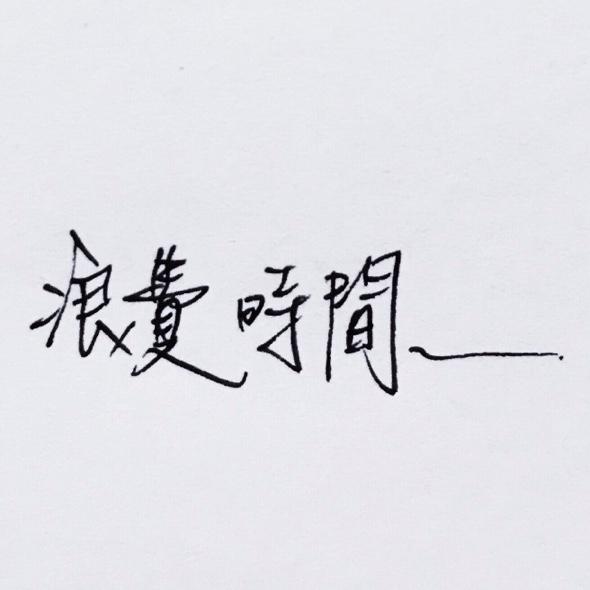 浪費時間